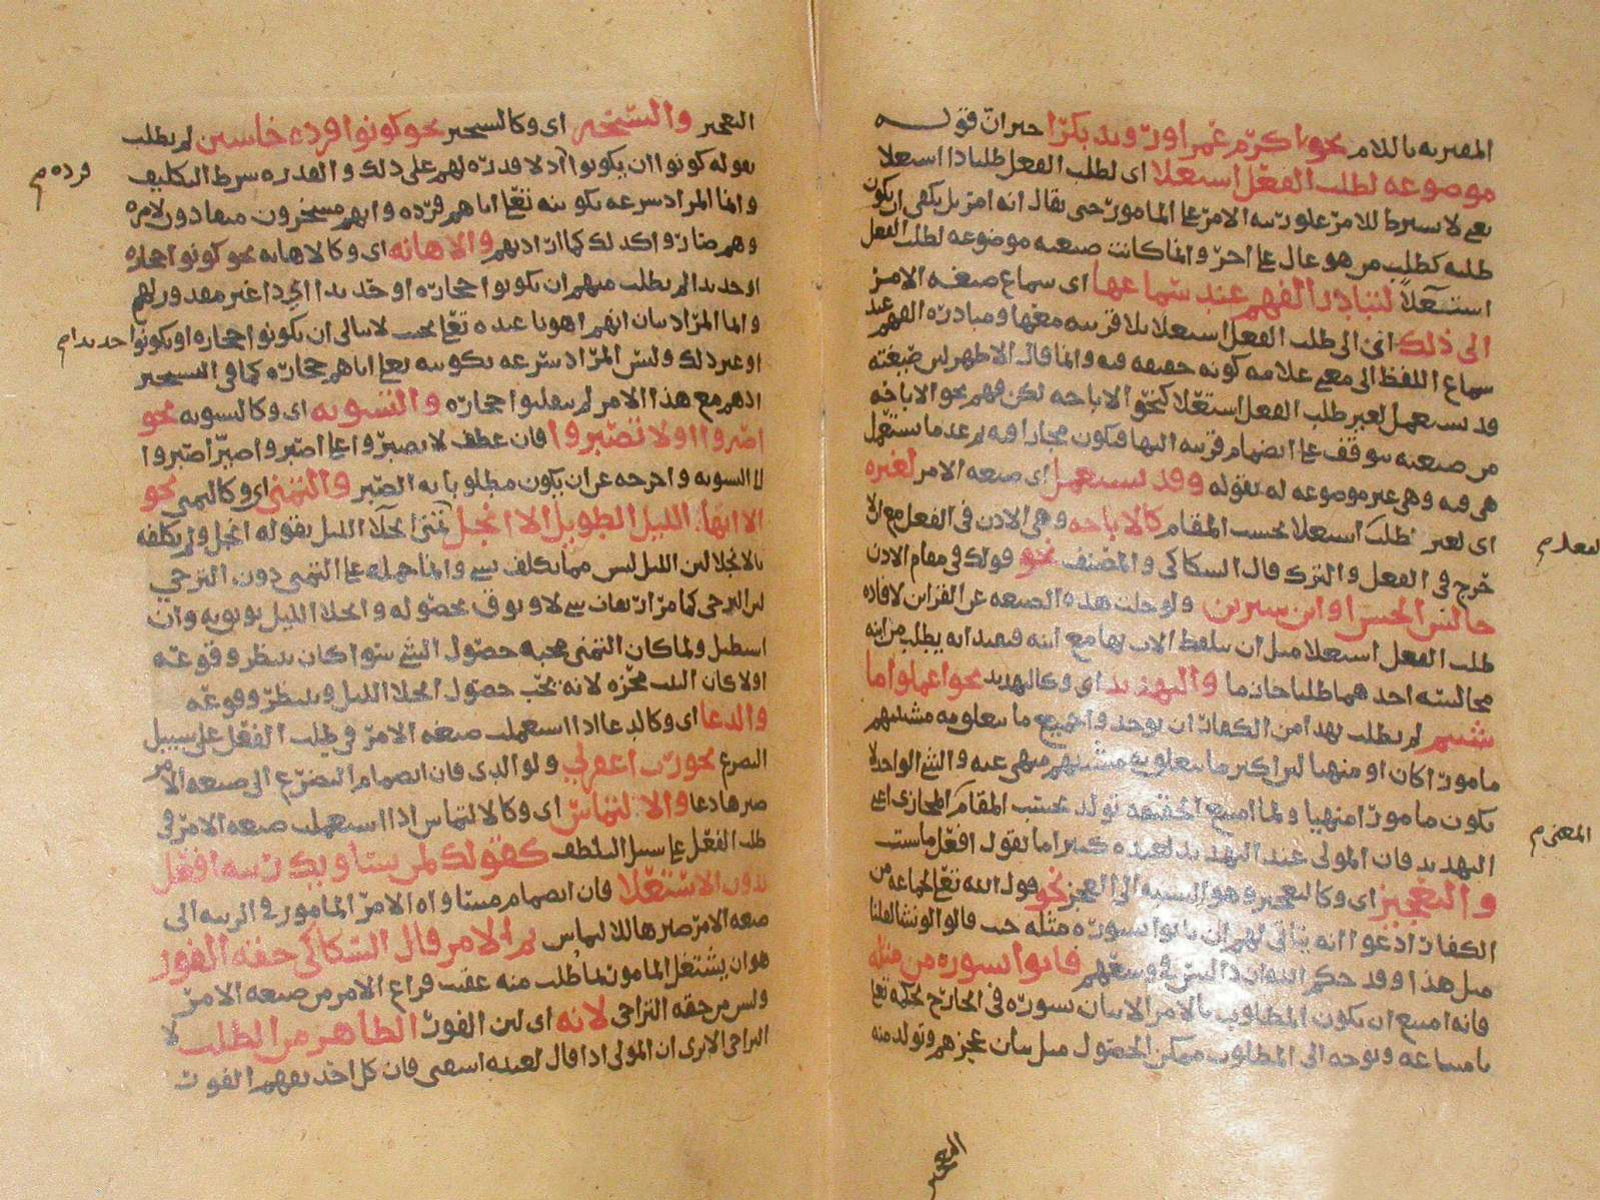 المقترنة باللام نحو اكرم عمرا ورويد بكرا خبر ان قوله
موضوعة لطلب الفعل استعلاء اي لطلب الفعل طلبا ذا استعلا
يعني لا يشترط للامر علو رتبة الامر على المامور حتى يقال انه امر بل يكفي ان يكون
طلبه كطلب من هو عال على اخر وانما كانت صيغته موضوعة لطلب الفعل
استعلاً لتبادر الفهم عند سماعها اي سماع صيغة الامر
الى ذلك اي الى طلب الفعل استعلا بلا قرينة معها ومبادرة الفهم عند
سماع اللفظ الى معنى علامة كونه حقيقة فيه وانما قال الاظهر لان صيغته
قد تستعمل لغير طلب الفعل استعلا كنحو الاباحة لكن فهم نحو الاباحة
من صيغته يتوقف على انضمام قرينة اليها فتكون مجازا فيه
هي فيه وهي غير موضوعة له بقوله وقد تستعمل اي صيغة الامر لغيره
اي لغير طلب استعلا بحسب المقام كالاباحة وهي الاذن في الفعل مع الا
لمعلم
حرج في الفعل والترك قال السكاكي والمصنف نحو قولك في مقام الاذن
جالس الحسن او ابن سيرين ولو خلت هذه الصيغة عن القرائن لافادة
طلب الفعل استعلا مثل ان يتلفظ الاب بها مع ابنه فيفيد انه يطلب من ابنه
مجالسة احدهما طلبا جازما والتهديد اي وكالتهديد نحو اعملوا ما
شئتم لم يطلب بهذا من الكفار ان يوجدوا جميع ما يتعلق به مشيتهم
مامورا كان او منهيا لان اكثر ما يتعلق به مشيتهم منهي عنه والشي الواحد لا
يكون مامورا منهيا ولما امتنع الحقيقة تولد بحسب المقام المجازي اعني
المعنى م
التهديد فان المولى عند التهديد لعبده كثيرا ما يقول افعل ما شئت
والتعجيز اي وكالتعجيز وهو النسبة الى العجز نحو قول الله تعالى لجماعة من
الكفار ادعوا انه يتاتى لهم ان ياتوا بسورة مثله حيث قالوا لو نشا لقلنا
مثل هذا وقد حكم الله ان ذا ليس في وسعهم فاتوا بسورة من مثله
فانه امتنع ان يكون المطلوب بالامر الاتيان سورة في الخارج لحكمه تعالى
بامتناعه وتوجه الى المطلوب ممكن الحصول مثل بيان عجزهم وتولد منه
التعجيز والتسخير اي وكالتسخير نحو كونوا قردة خاسين لم يطلب
بقوله كونوا ان يكونوا اذ لا قدرة لهم على ذلك والقدرة شرط التكليف
قرده م
وانما المراد سرعة تكوينه تعالى اياهم قردة وانهم مسخرون منقادون لامره
وهم صاروا كذلك كما اراد بهم والاهانة اي وكالاهانة نحو كونوا حجارة
او حديدا لم يطلب منهم ان يكونوا حجارة او حديدا اذ ذا غير مقدور لهم
وانما المراد بيان انهم اهونا عنده تعالى بحيث لا يبالي ان يكونوا حجارة او يكونوا
حديدا م
او غير ذلك وليس المراد سرعة تكوينه تعالى اياهم حجارة كما في التسخير
اذ هم مع هذا الامر لم ينقلبوا حجارة والتسوية اي وكالتسوية نحو
اصبروا او لا تصبروا فان عطف لا تصبروا على اصبروا صير اصبروا
للتسوية واخرجه عن ان يكون مطلوبا به الصبر والتمني اي وكالتمني نحو
الا ايها الليل الطويل الا انجل تمنى انجلا الليل بقوله انجل ولم يكلفه
بالانجلا لان الليل ليس مما يكلف بشي وانما حمله على التمني دون الترجي
لان الترجي كما مر ارتقاب شي لا وثوق بحصوله وانجلا الليل وثوق به وان
استطيل ولما كان التمني محبة حصول الشي سوا كان ينتظر وقوعه
اولا كان لانه يحب حصول انجلا الليل وينتظر وقوعه
والدعا اي وكالدعا اذا استعملت صيغة الامر في طلب الفعل على سبيل
التضرع نحو رب اغفر لي ولوالدي فان انضمام التضرع الى صيغة الامر
صيرها دعا والالتماس اي وكالالتماس اذا استعملت صيغة الامر في
طلب الفعل على سبيل التلطف كقولك لمن يساويك رتبة افعل
بدون الاستعلا فان انضمام مساواة الامر المامور في الرتبة الى
صيغة الامر صيرها للالتماس ثم الامر قال السكاكي حقه الفور
هو ان يشتغل المامور بما طلب منه عقب فراغ الامر من صيغة الامر
وليس من حقه التراخي لانه اي لان الفور الظاهر من الطلب لا
التراخي الا ترى ان المولى اذا قال لعبده اسقني فان كل احد يفهم الفور